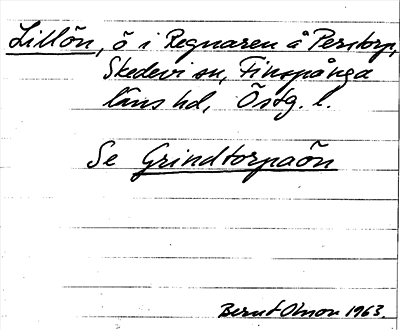 Lillön, ö i Regnaren å Perstorp,
Skedevi sn, Finspånga
läns hd, Östg. l.
Se Grindtorpaön
Bernt Olsson 1963.